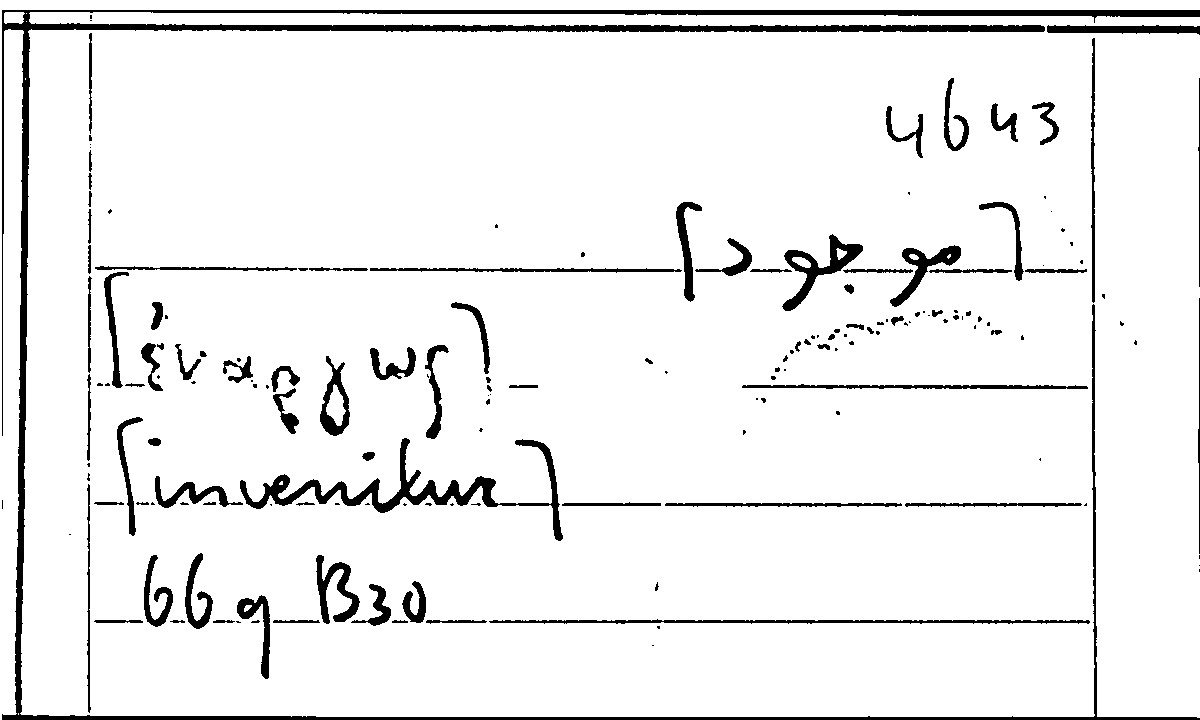 4643
[موجود]
[ἐναργως]
[invenitur]
669 B30